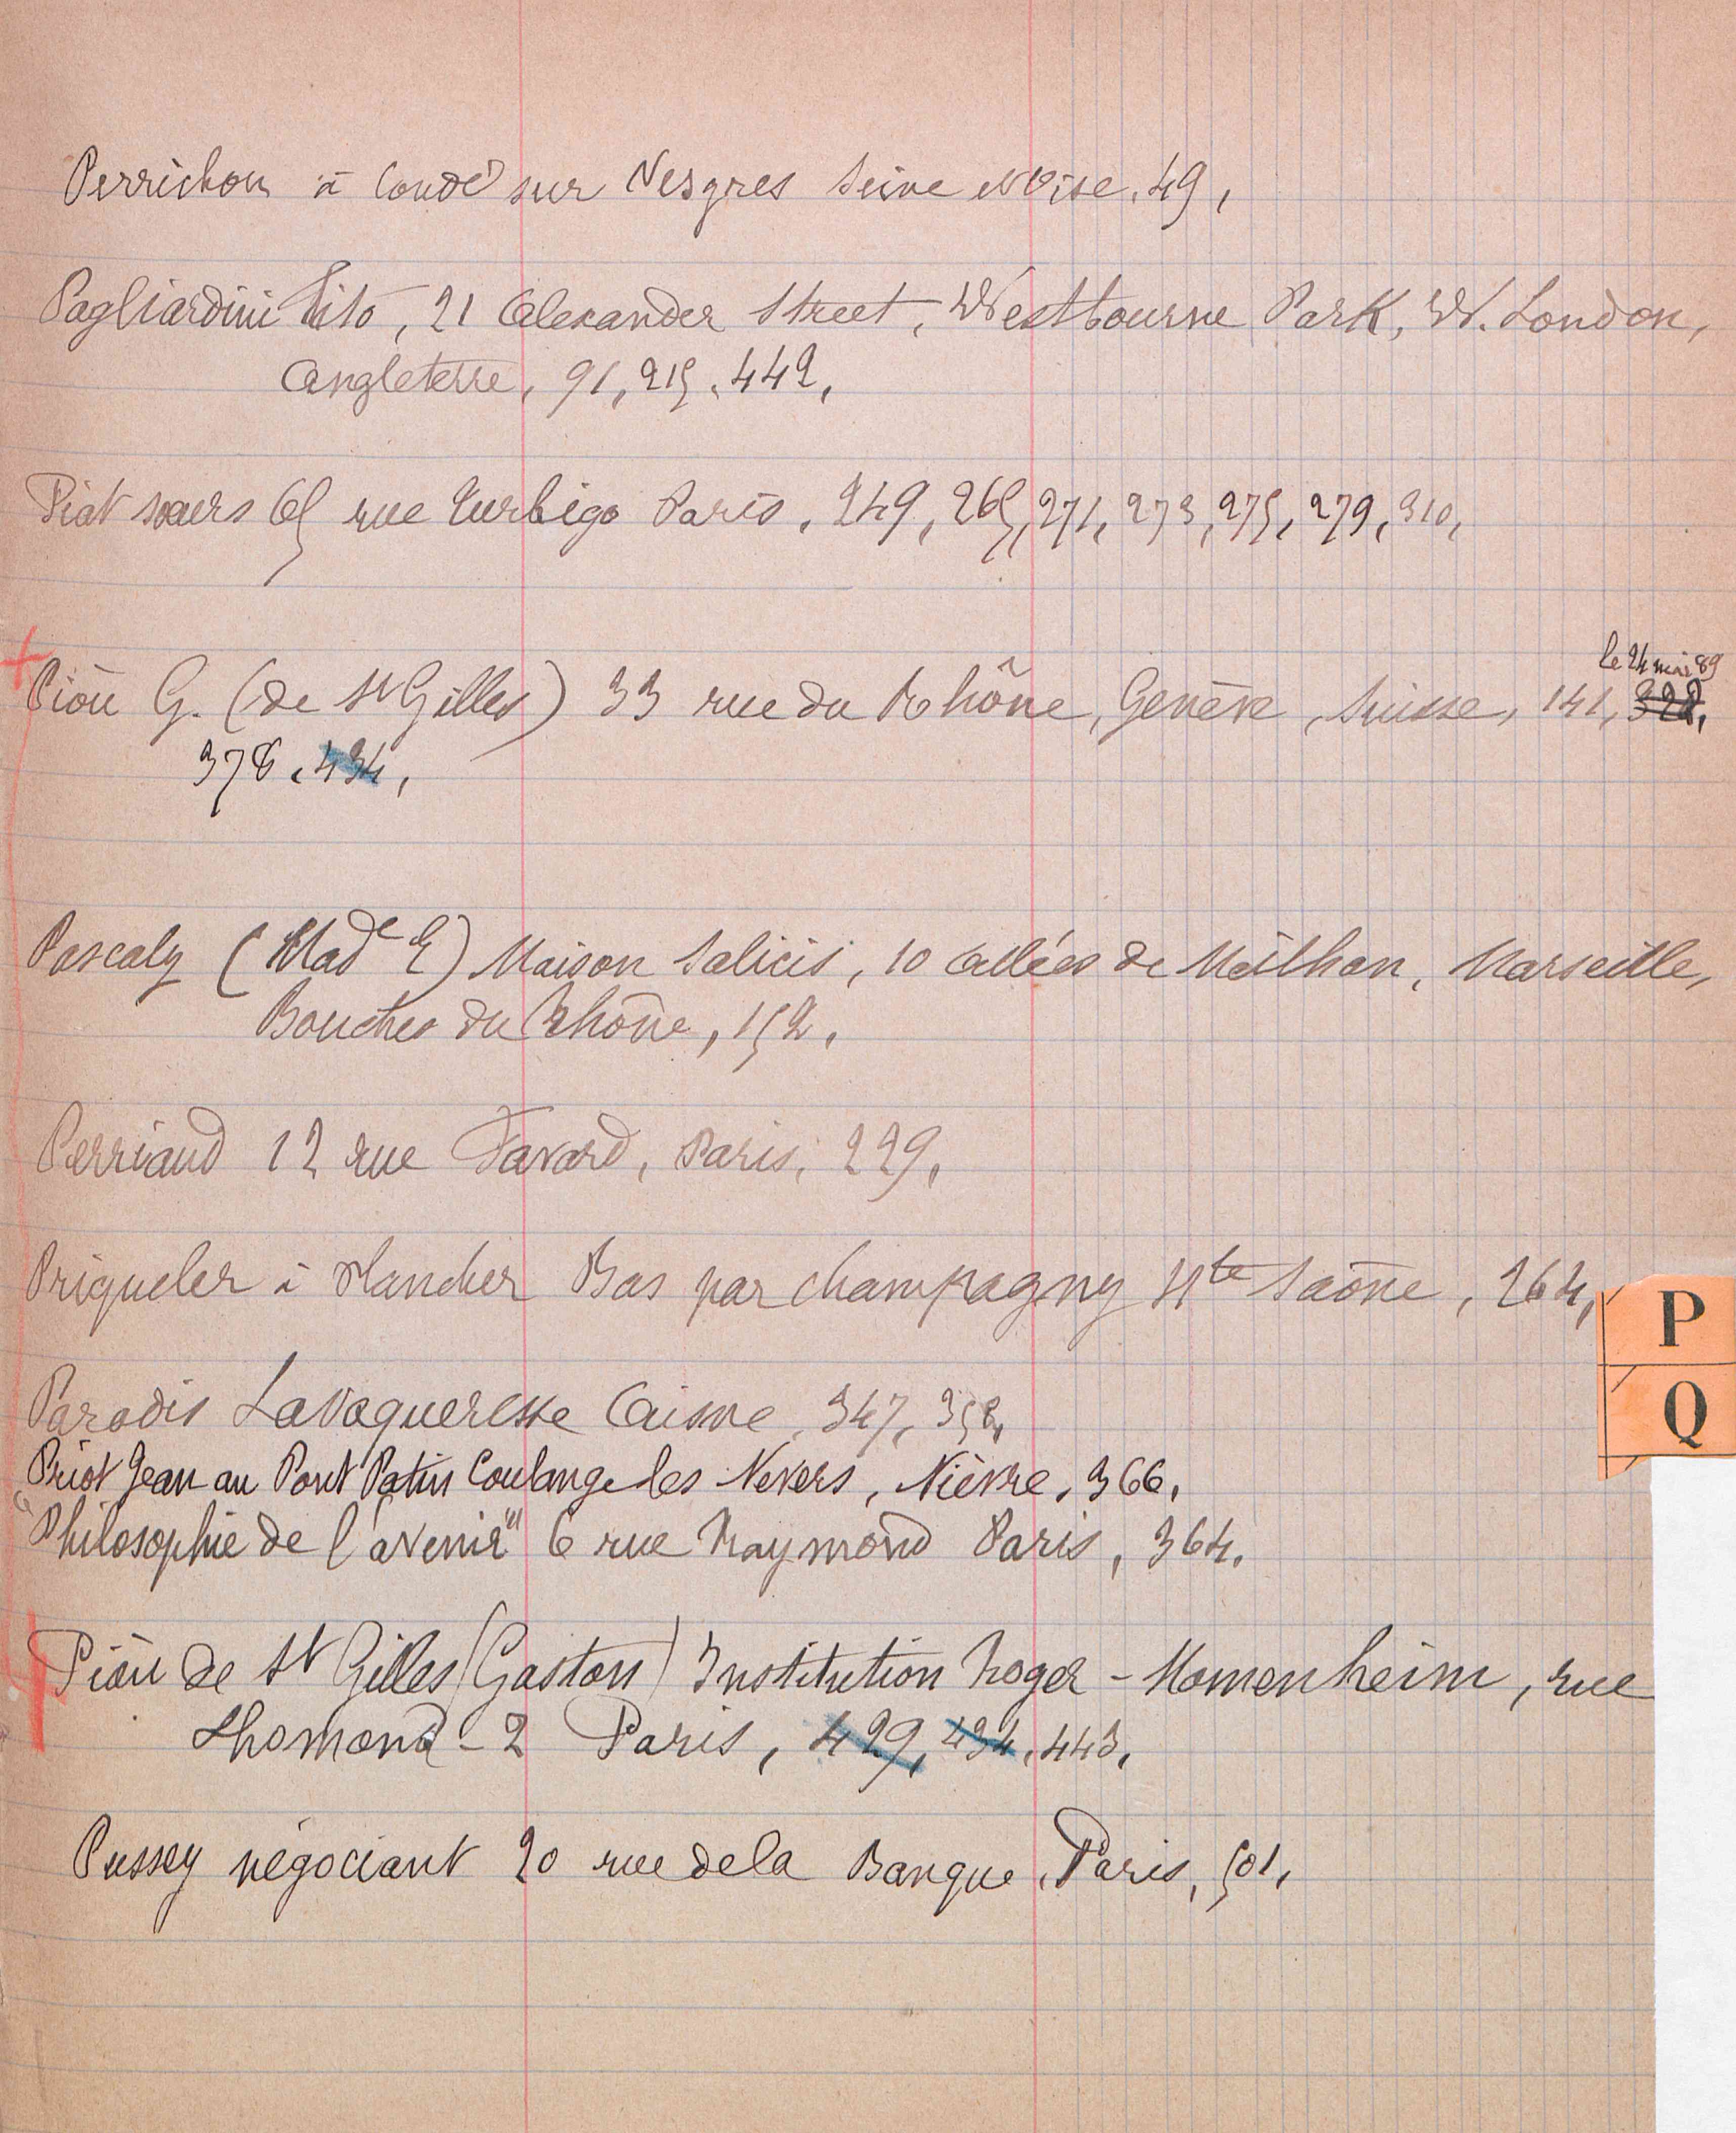 Perrichon à Condé sur Vesgres Seine et Oise. 49,
Pagliardini Tito, 21 Alexander Street, Westbourne Park, W. London,
Angleterre, 91, 215, 442,
Piat sœurs 65 rue Turbigo Paris, 249, 265, 271, 273, 275, 279, 310,
le 24 mai 89
Pioû G. (de St Gilles) 33 rue du Rhône, Genève, Suisse, 141, 328,
378, 434,
Pascaly (Made E) Maison Salicis, 10 Allées de Meilhan, Marseille,
Bouches du Rhône, 152,
Perriaud 12 rue Favard, Paris, 229,
Priqueler à Plancher Bas par Champagny Hte Saône, 264,
P
Q
Paradis Lavaqueresse Aisne, 347, 358,
Priot Jean au Pont Patin Coulange les Nevers, Nièvre, 366,
"Philosophie de l'avenir" 6 rue Raymond Paris, 364,
Pioû de St Gilles (Gaston) Institution Roger-Momenheim, rue
Lhomond - 2 Paris, 429, 434, 443,
Pussey négociant 20 rue de la Banque, Paris, 501,